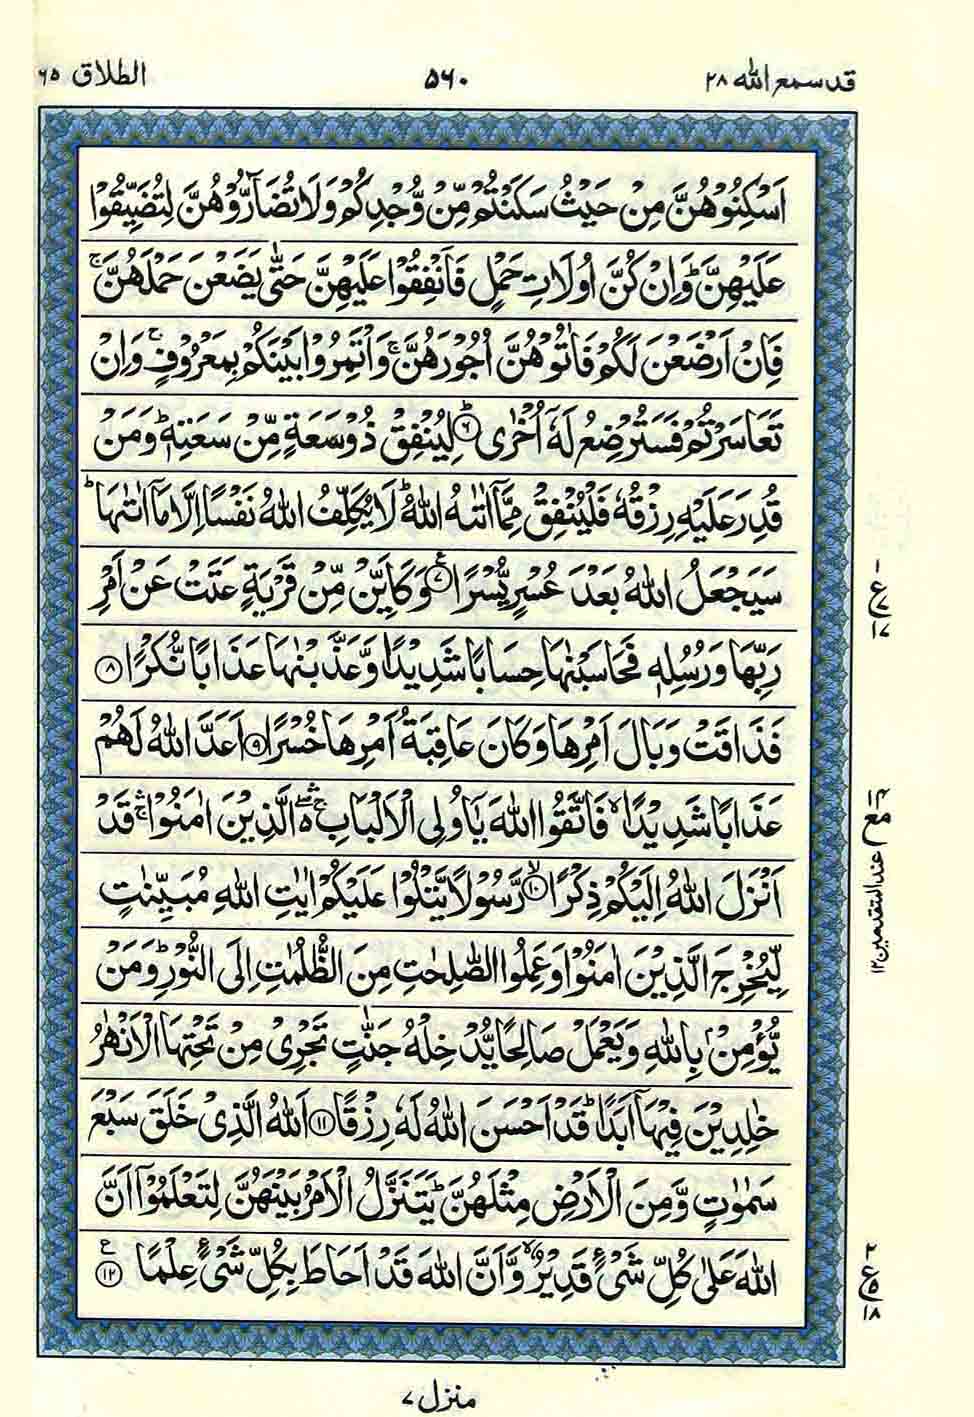 قد سمع الله ۲۸
۵۶۰
الطلاق ۶۵
اَسْكِنُوْهُنَّ مِنْ حَيْثُ سَكَنْتُمْ مِّنْ وُّجْدِكُمْ وَلَا تُضَآرُّوْهُنَّ لِتُضَيِّقُوْا
عَلَيْهِنَّ ؕ وَاِنْ كُنَّ اُولَاتِ حَمْلٍ فَاَنْفِقُوْا عَلَيْهِنَّ حَتّٰى يَضَعْنَ حَمْلَهُنَّ ۚ
فَاِنْ اَرْضَعْنَ لَكُمْ فَاٰتُوْهُنَّ اُجُوْرَهُنَّ ۚ وَاْتَمِرُوْا بَيْنَكُمْ بِمَعْرُوْفٍ ۚ وَاِنْ
تَعَاسَرْتُمْ فَسَتُرْضِعُ لَهٗٓ اُخْرٰى ؕ ۶ لِيُنْفِقْ ذُوْ سَعَةٍ مِّنْ سَعَتِهٖ ؕ وَمَنْ
قُدِرَ عَلَيْهِ رِزْقُهٗ فَلْيُنْفِقْ مِمَّآ اٰتٰىهُ اللّٰهُ ؕ لَا يُكَلِّفُ اللّٰهُ نَفْسًا اِلَّا مَآ اٰتٰىهَا ؕ
سَيَجْعَلُ اللّٰهُ بَعْدَ عُسْرٍ يُّسْرًا ۷ ع وَكَاَيِّنْ مِّنْ قَرْيَةٍ عَتَتْ عَنْ اَمْرِ
رَبِّهَا وَرُسُلِهٖ فَحَاسَبْنٰهَا حِسَابًا شَدِيْدًا وَّعَذَّبْنٰهَا عَذَابًا نُّكْرًا ۸
فَذَاقَتْ وَبَالَ اَمْرِهَا وَكَانَ عَاقِبَةُ اَمْرِهَا خُسْرًا ۹ اَعَدَّ اللّٰهُ لَهُمْ
عَذَابًا شَدِيْدًا ۙ فَاتَّقُوا اللّٰهَ يٰٓاُولِى الْاَلْبَابِ ۛۚ ۖ الَّذِيْنَ اٰمَنُوْا ۛۚ قَدْ
اَنْزَلَ اللّٰهُ اِلَيْكُمْ ذِكْرًا ۙ ۱۰ رَّسُوْلًا يَّتْلُوْا عَلَيْكُمْ اٰيٰتِ اللّٰهِ مُبَيِّنٰتٍ
لِّيُخْرِجَ الَّذِيْنَ اٰمَنُوْا وَعَمِلُوا الصّٰلِحٰتِ مِنَ الظُّلُمٰتِ اِلَى النُّوْرِ ؕ وَمَنْ
يُّؤْمِنْۢ بِاللّٰهِ وَيَعْمَلْ صَالِحًا يُّدْخِلْهُ جَنّٰتٍ تَجْرِيْ مِنْ تَحْتِهَا الْاَنْهٰرُ
خٰلِدِيْنَ فِيْهَآ اَبَدًا ؕ قَدْ اَحْسَنَ اللّٰهُ لَهٗ رِزْقًا ۱۱ اَللّٰهُ الَّذِيْ خَلَقَ سَبْعَ
سَمٰوٰتٍ وَّمِنَ الْاَرْضِ مِثْلَهُنَّ ؕ يَتَنَزَّلُ الْاَمْرُ بَيْنَهُنَّ لِتَعْلَمُوْٓا اَنَّ
اللّٰهَ عَلٰى كُلِّ شَيْءٍ قَدِيْرٌ ۙ وَّاَنَّ اللّٰهَ قَدْ اَحَاطَ بِكُلِّ شَيْءٍ عِلْمًا ۱۲ ع
۱
ع ۷
۱۷
مع
عند المتقدمين ۱۲
۲
ع ۵
۱۸
منزل ۷